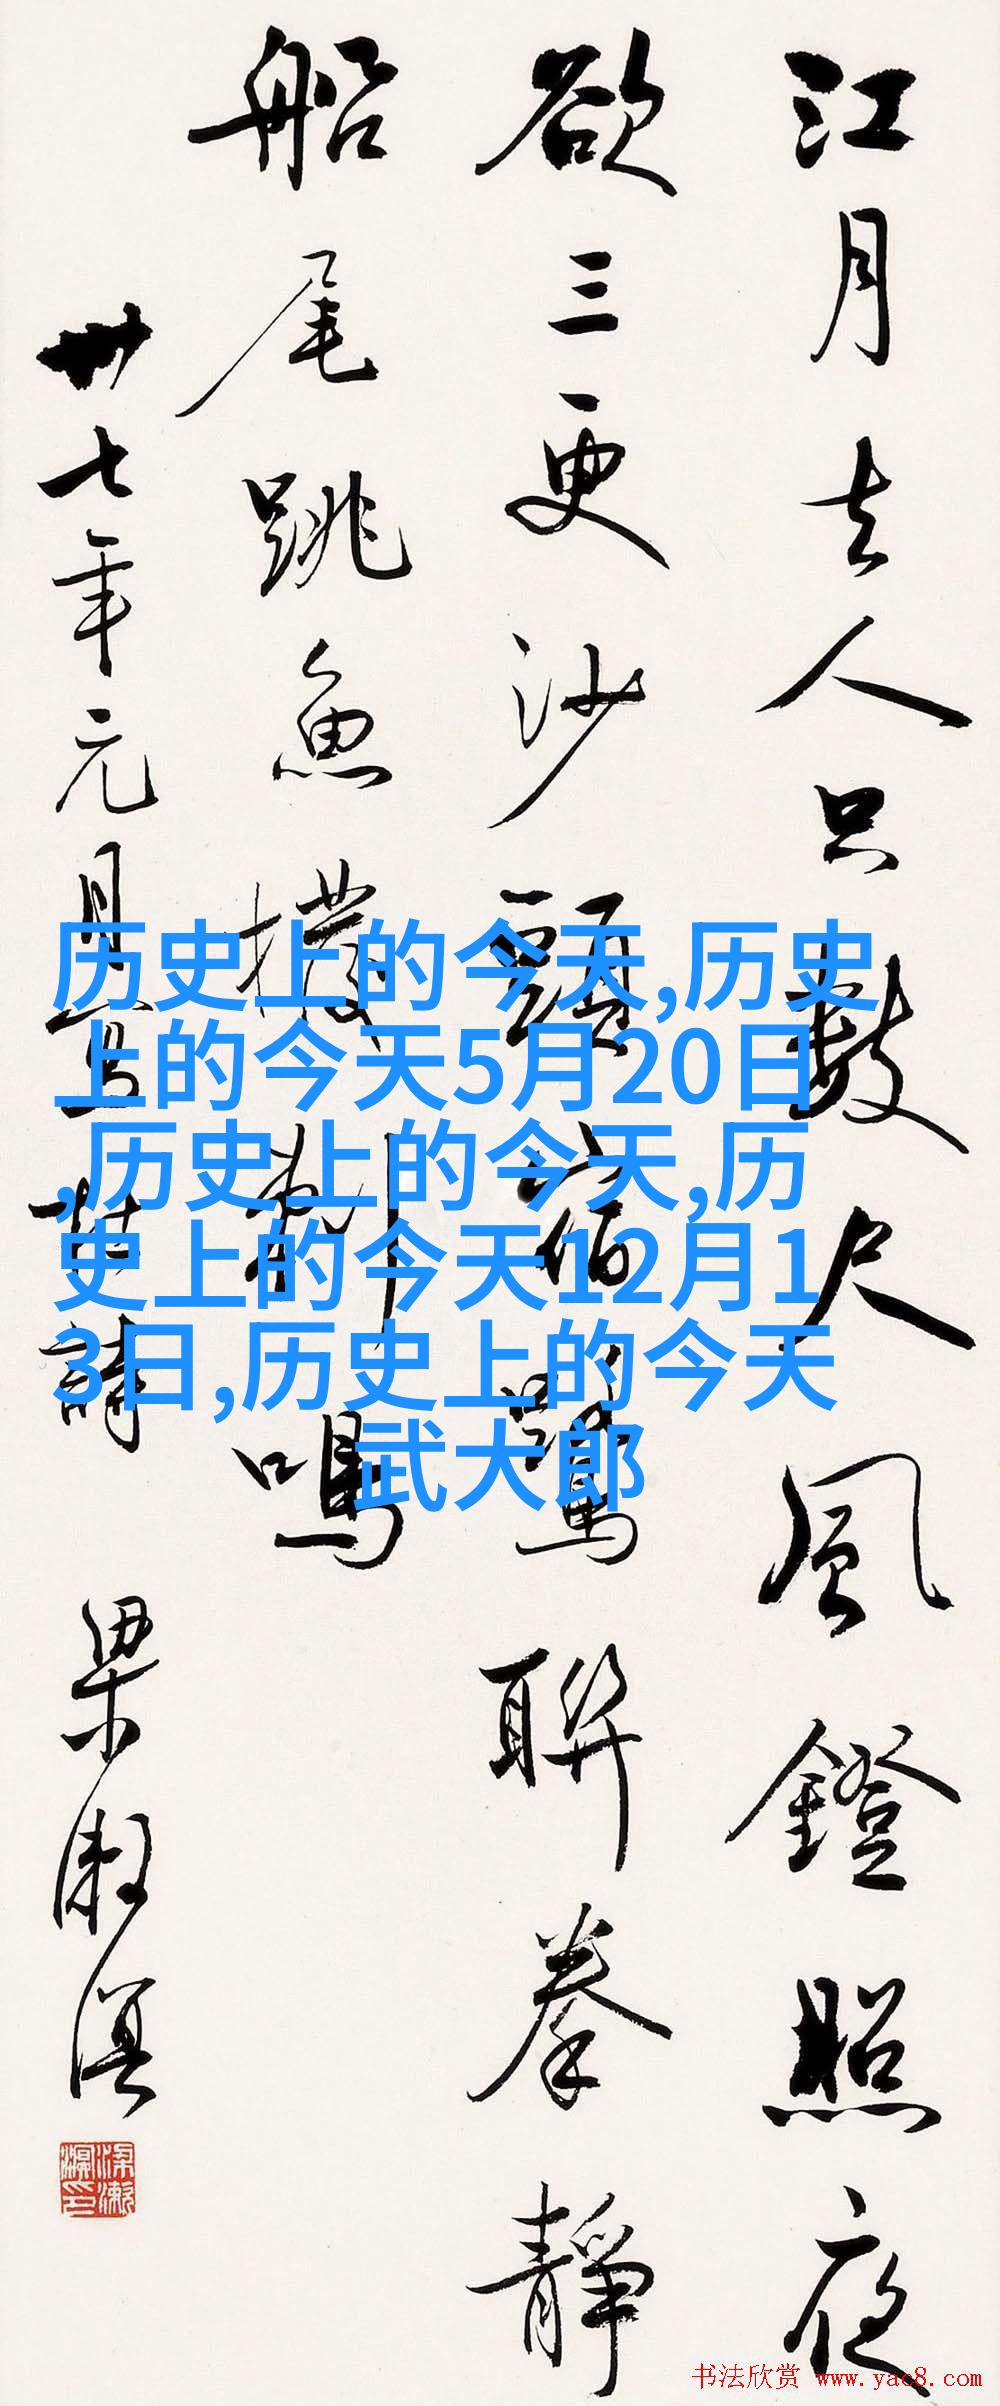 江月去人只数尺風鐙照夜
欲三更沙頭宿鷺聯拳静
船尾跳魚撥剌鳴
卅七年元旦书杜诗
梁漱溟
历史上的今天,历史
上的今天5月20日
,历史上的今天,历
史上的今天12月1
3日,历史上的今天
武大郎
书法欣赏 www.yac8.com